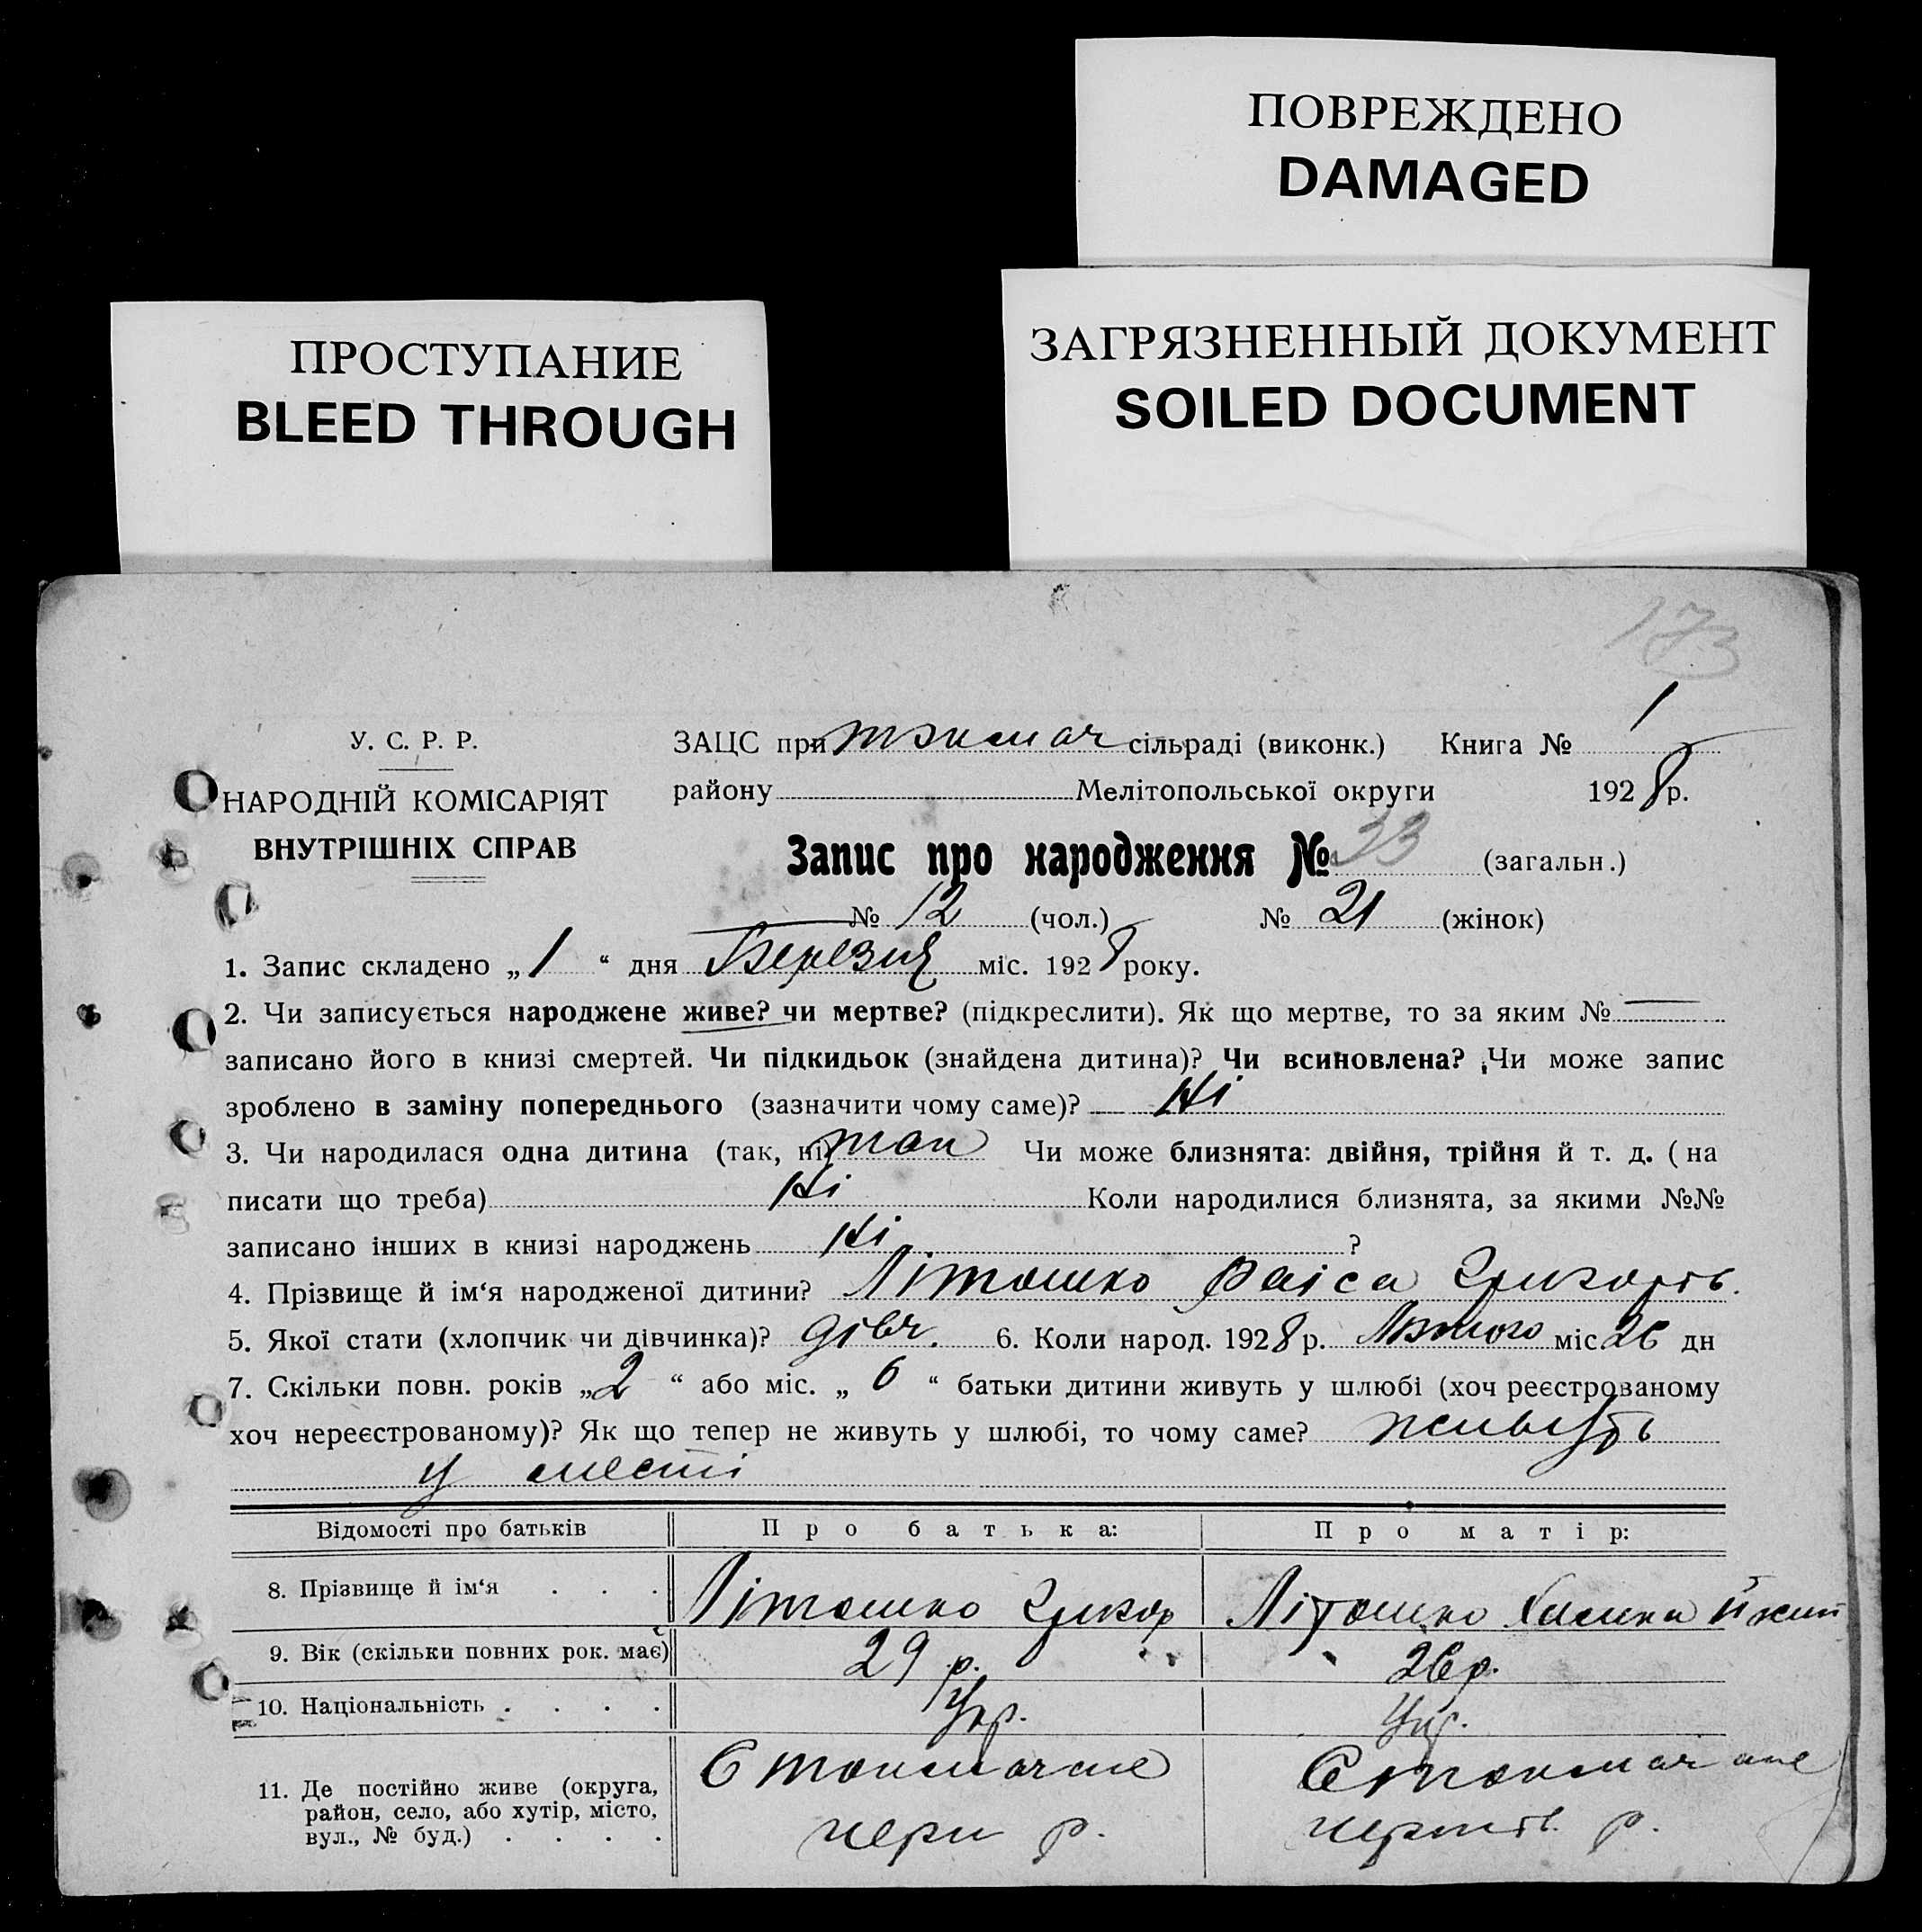 ПОВРЕЖДЕНО
DAMAGED
ПРОСТУПАНИЕ
BLEED THROUGH
ЗАГРЯЗНЕННЫЙ ДОКУМЕНТ
SOILED DOCUMENT
173
У. С. Р. Р.
НАРОДНІЙ КОМІСАРІЯТ
ВНУТРІШНІХ СПРАВ
ЗАЦС при сільраді (виконк.) Книга № 1
району Мелітопольської округи 1928 р.
Запис про народження № 33 (загальн.)
№ 12 (чол.) № 21 (жінок)
1. Запис складено „ 1 “ дня Березня міс. 1928 року.
2. Чи записується народжене живе? чи мертве? (підкреслити). Як що мертве, то за яким № —
записано його в книзі смертей. Чи підкидьок (знайдена дитина)? Чи всиновлена? Чи може запис
зроблено в заміну попереднього (зазначити чому саме)? Ні
3. Чи народилася одна дитина (так, ні) так Чи може близнята: двійня, трійня й т. д. (на
писати що треба) Ні Коли народилися близнята, за якими №№
записано інших в книзі народжень Ні ?
4. Прізвище й ім‘я народженої дитини? Літошко Раіса Григорів.
5. Якої стати (хлопчик чи дівчинка)? дівч. 6. Коли народ. 1928 р. Лютого міс 26 дн
7. Скільки повн. років „ 2 “ або міс. „ 6 “ батьки дитини живуть у шлюбі (хоч реєстрованому
хоч нереєстрованому)? Як що тепер не живуть у шлюбі, то чому саме? живуть
у
Відомості про батьків Про батька: Про матір:
8. Прізвище й ім‘я . . . Літошко Григор Літошко
9. Вік (скільки повних рок. має) 29 р. 26 р.
10. Національність . . . . Укр. Укр.
11. Де постійно живе (округа,
район, село, або хутір, місто,
вул., № буд.) . . . . р. р.